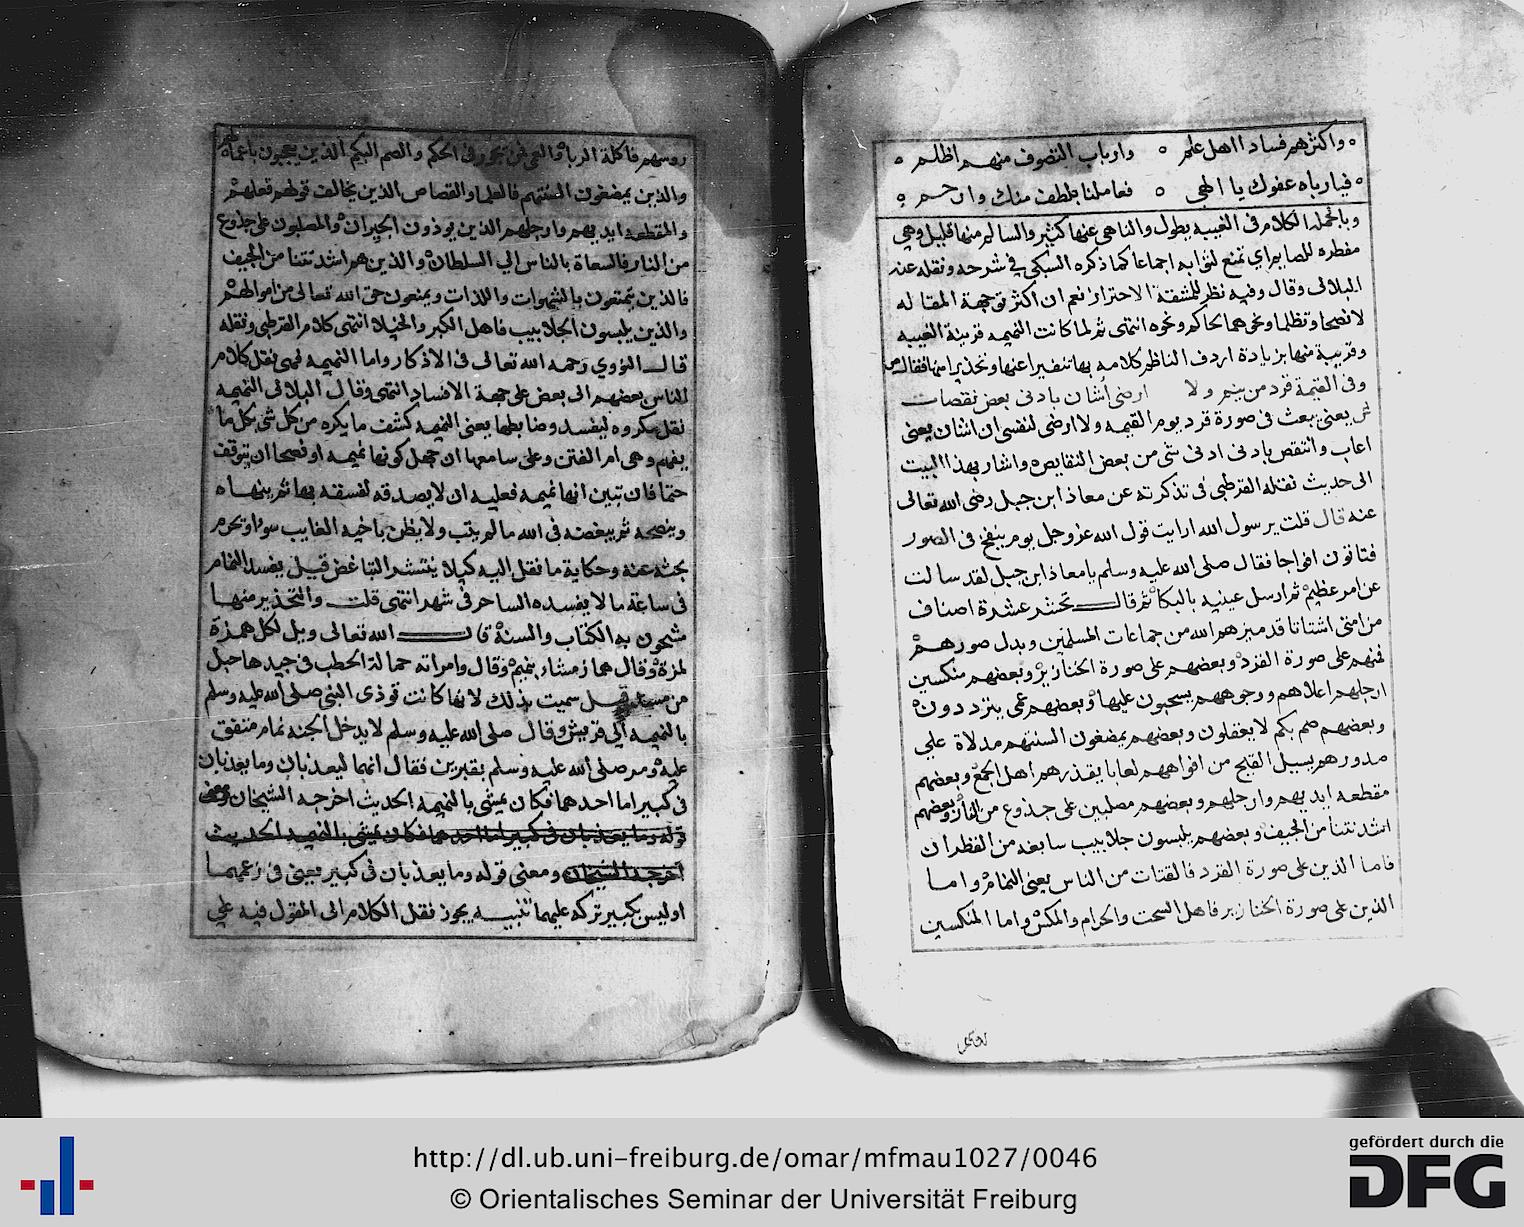 واكثرهم فسادا اهل علم ٥ وارباب التصوف منهم اظلم ٥
فيارباه عفوك يا الهي ٥ فعاملنا بلطف منك وارحم
وبالجمله الكلام في الغيبه يطول والناهي عنها كثير والسالم منها قليل وهي
مفطره للصايم اي تمنع لثوابه اجماعا كما ذكره السبكي في شرحه ونقله عنه
البلالي وقال وفيه نظر للمشقة الاحتراز نعم ان اكثر توجهة المقاله
لا نصحا وتظلما ونحوهما لحاكم ونحوه انتهى ثم لما كانت النميمه قرينة الغيبه
وقريبة منها بزيادة اردف الناظم كلامه بها تنفيرا عنها وتحذيرا منها فقال
وفي القيمة قرد من ينم ولا ارضى انشان بادنى بعض نقصات
يعني يبعث في صورة قرد يوم القيمه ولا ارضى لنفسي ان انشان يعني
اعاب وانتقص بادنى ادنى شي من بعض النقايص واشار بهذا البيت
الى حديث نقله القرطبي في تذكرته عن معاذ ابن جبل رضى الله تعالى
عنه قال قلت يرسول الله ارايت قول الله عز وجل يوم ينفخ في الصور
فتاتون افواجا فقال صلى الله عليه وسلم يا معاذ ابن جبل لقد سالت
عن امر عظيم ثم ارسل عينيه بالبكا ثم قال تحشر عشرة اصناف
من امتي اشتاتا قد ميزهم الله من جماعات المسلمين وبدل صورهم
فمنهم على صورة القرد وبعضهم على صورة الخنازير وبعضهم منكسين
ارجلهم اعلاهم ووجوههم يسحبون عليها وبعضهم عمي يترددون
وبعضهم صم بكم لا يعقلون وبعضهم يمضغون السنتهم مدلاة على
صدورهم يسيل القيح من افواههم لعابا يقذرهم اهل الجمع وبعضهم
مقطعه ايديهم وارجلهم وبعضهم مصلبين على جذوع من النار وبعضهم
اشد نتنا من الجيف وبعضهم يلبسون جلابيب سابغه من القطران
فاما الذين على صورة القرد فالقتات من الناس يعني النمام واما
الذين على صورة الخنازير فاهل السحت والحرام والمكس واما المنكسين
روسهم فاكلة الربا والعمي فمن يجور في الحكم والصم البكم الذين يعجبون باعمالهم
والذين يمضغون السنتهم فالعلما والقصاص الذين يخالف قولهم فعلهم
والمقطعه ايديهم وارجلهم الذين يوذون الجيران والمصلبون على جذوع
من النار فالسعاة بالناس الي السلطان والذين هم اشد نتنا من الجيف
فالذين يتمتعون بالشهوات واللذات ويمنعون حق الله تعالى من اموالهم
والذين يلبسون الجلابيب فاهل الكبر والخيلا انتهى كلام القرطبي ونقله
قال النووي رحمه الله تعالى في الاذكار واما النميمه فهي نقل كلام
الناس بعضهم الى بعض على جهة الافساد انتهى وقال البلالي النميمه
نقل مكروه ليفسد وضابطها يعني النميمه كشف ما يكره من كل شي بكل ما
يفهم وهي ام الفتن وعلى سامعها ان جهل كونها نميمه او نصحا ان يتوقف
حتما فان تبين انها نميمه فعليه ان لا يصدقه لفسقه بها ثم ينهاه
وينصحه ثم يبغضه في الله ما لم يتب ولا يظن باخيه الغايب سوا ويحرم
بحثه عنه وحكاية ما نقل اليه كيلا ينتشر التباغض قيل يفسد النمام
في ساعة ما لا يفسده الساحر في شهر انتهى قلت والتحذير منها
مشحون به الكتاب والسنة قال الله تعالى ويل لكل همزة
لمزة وقال هماز مشاء بنميم وقال وامراته حمالة الحطب في جيدها حبل
من مسد قيل سميت بذلك لانها كانت توذي النبي صلى الله عليه وسلم
بالنميمه الي قريش وقال صلى الله عليه وسلم لا يدخل الجنه نمام متفق
عليه ومر صلى الله عليه وسلم بقبرين فقال انهما ليعذبان وما يعذبان
في كبير اما احدهما فكان يمشي بالنميمه الحديث اخرجه الشيخان ومعنى
قوله وما يعذبان في كبير اما احدهما فكان يمشي بالنميمه الحديث
اخرجه الشيخان ومعنى قوله وما يعذبان في كبير يعني في زعمهما
او ليس بكبير تركه عليهما تنبيه يجوز نقل الكلام الى المقول فيه على
http://dl.ub.uni-freiburg.de/omar/mfmau1027/0046
© Orientalisches Seminar der Universität Freiburg
gefördert durch die
DFG